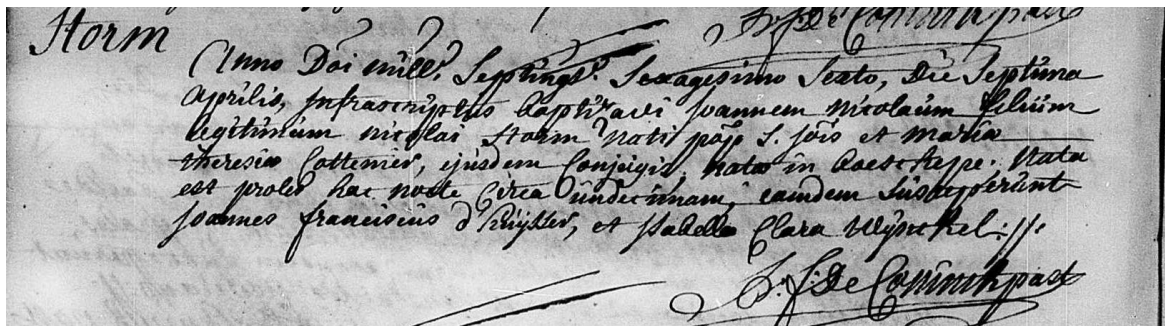 J: f: De Coninck past
Storm
Anno Doi mill.ⁱ Septing.ⁱ Sexagesimo Sexto, Die Septima
Aprilis, Infrascriptus baptizavi Joannem Nicolaum filium
legitimum nicolai Storm nati S. jois et maria
theresia Cottenier, ejusdem Conjugis, nata in boeschepe. Nata
est proles hac nocte Circa undecimam, eamdem Susceperunt
Joannes franciscus d'Kuijster, et Isabella Clara Wÿnckel.//.
J: f: De Coninck past